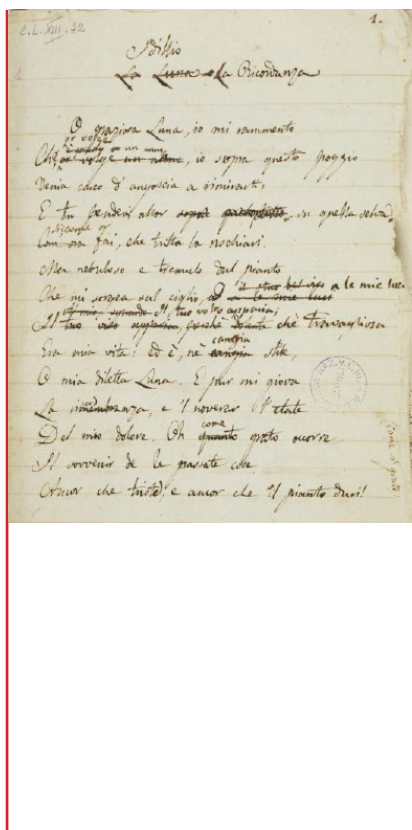 C.L. XIII. 22
1.
Idillio
La Luna o La Ricordanza
O graziosa Luna, io mi rammento
or volge
è presso or un anno
Che, or volge un anno, io sopra questo poggio
Venia carco d'angoscia a rimirarti:
E tu pendevi allor su quella selva,
siccome or
Com' ora fai, che tutta la rischiari.
Ma nebuloso e tremulo dal pianto
il tuo bel viso a le mie luci
Che mi sorgea sul ciglio, o a le mie luci
Al mio sguardo il tuo volto apparia;
Il tuo viso apparia, perchè dolente che travagliosa
cangia
Era mia vita: ed è, nè cangia stile,
O mia diletta Luna. E pur mi giova
La rimembranza, e 'l noverar l'etate
come
Del mio dolore. Oh quanto grato occorre
Il sovvenir de le passate cose
Ancor che triste, e ancor che il pianto duri!
Come è grato